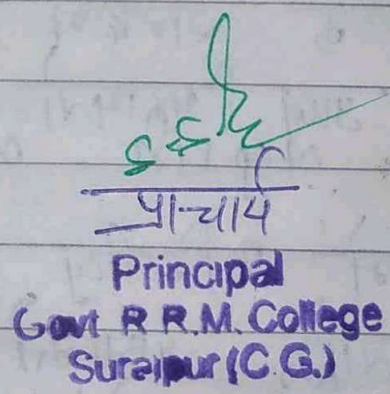 प्राचार्य
Principal
Govt R R.M. College
Surajpur (C.G.)